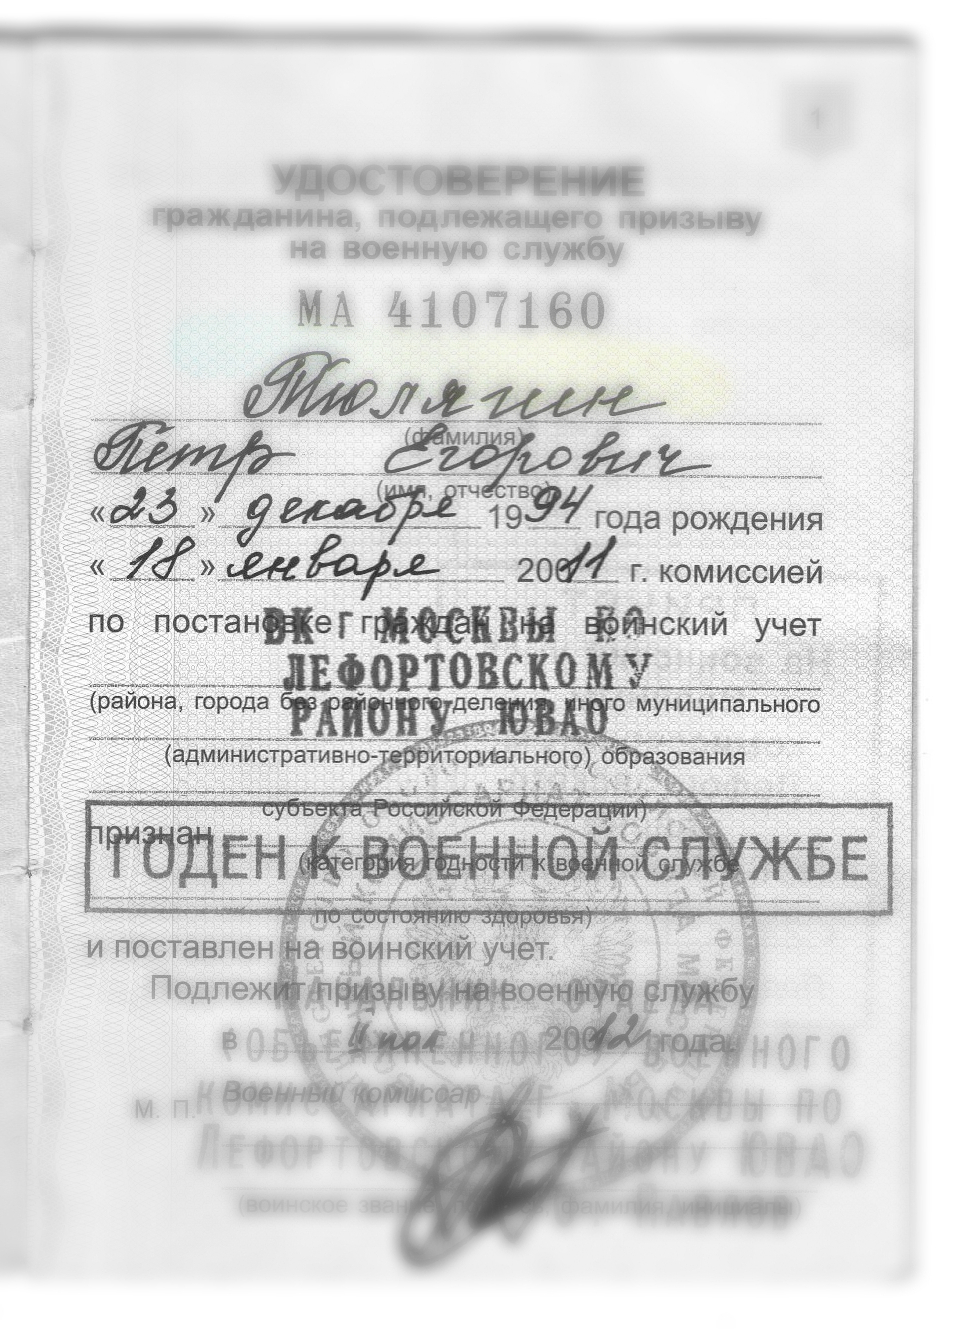 1
УДОСТОВЕРЕНИЕ
гражданина, подлежащего призыву
на военную службу
МА 4107160
Тюлягин
(фамилия)
Петр Егорович
(имя, отчество)
« 23 » декабря 1994 года рождения
« 18 » января 20011 г. комиссией
по постановке граждан на воинский учет
ВК г МОСКВЫ ПО
ЛЕФОРТОВСКОМУ
(района, города без районного деления, иного муниципального
РАЙОНУ ЮВАО
(административно-территориального) образования
субъекта Российской Федерации)
признан
ГОДЕН К ВОЕННОЙ СЛУЖБЕ
(категория годности к военной службе
по состоянию здоровья)
и поставлен на воинский учет.
Подлежит призыву на военную службу
в II пол 20012 года.
ОБЪЕДИНЕННОГО ВОЕННОГО
Военный комиссар
КОМИССАРИАТА Г. МОСКВЫ ПО
М. П.
ЛЕФОРТОВСКОМУ РАЙОНУ ЮВАО
(воинское звание, подпись, фамилия, инициалы)